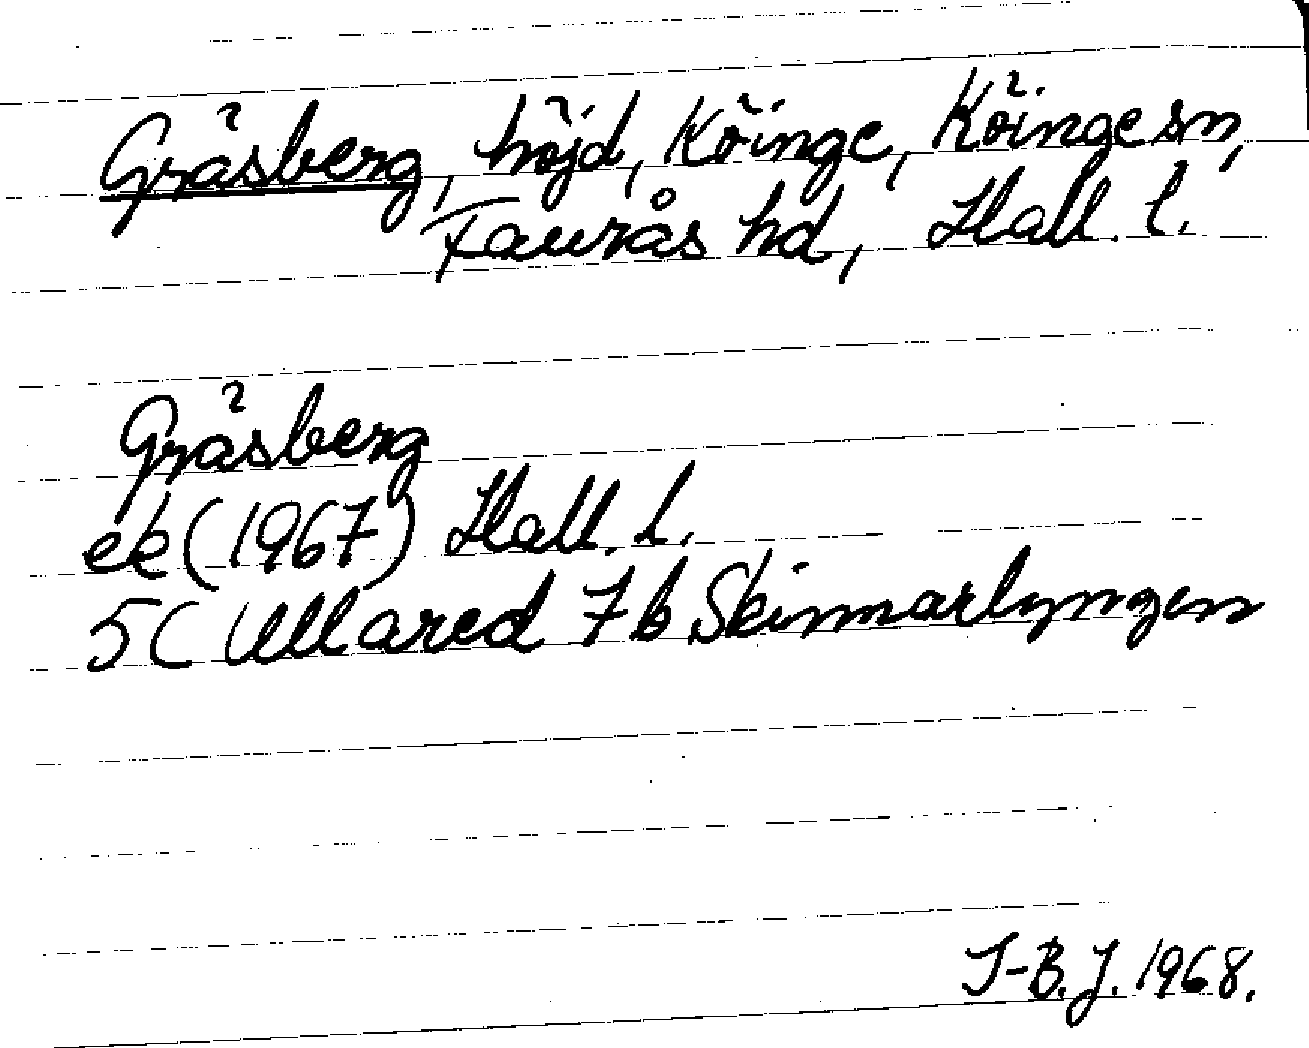 Gräsberg, höjd, Köinge, Köinge sn,
Faurås hd, Hall. l.
Gräsberg
ek (1967) Hall. l.
5C Ullared 7b Skinnarlyngen
I-B. J. 1968.